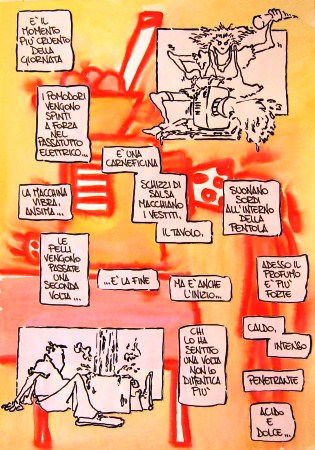 E' IL
MOMENTO
PIU' CRUENTO
DELLA
GIORNATA
I POMODORI
VENGONO
SPINTI
A FORZA
NEL
PASSATUTTO
ELETTRICO...
E' UNA
CARNEFICINA
LA MACCHINA
VIBRA,
ANSIMA...
SCHIZZI DI
SALSA
MACCHIANO
I VESTITI,
IL TAVOLO.
SUONANO
SORDI
ALL'INTERNO
DELLA
PENTOLA
LE
PELLI
VENGONO
PASSATE
UNA
SECONDA
VOLTA...
...E' LA FINE
MA E' ANCHE
L'INIZIO...
ADESSO IL
PROFUMO
E' PIU'
FORTE
CHI
LO HA
SENTITO
UNA VOLTA
NON LO
DIMENTICA
PIU'
CALDO,
INTENSO
PENETRANTE
ACIDO
E
DOLCE...